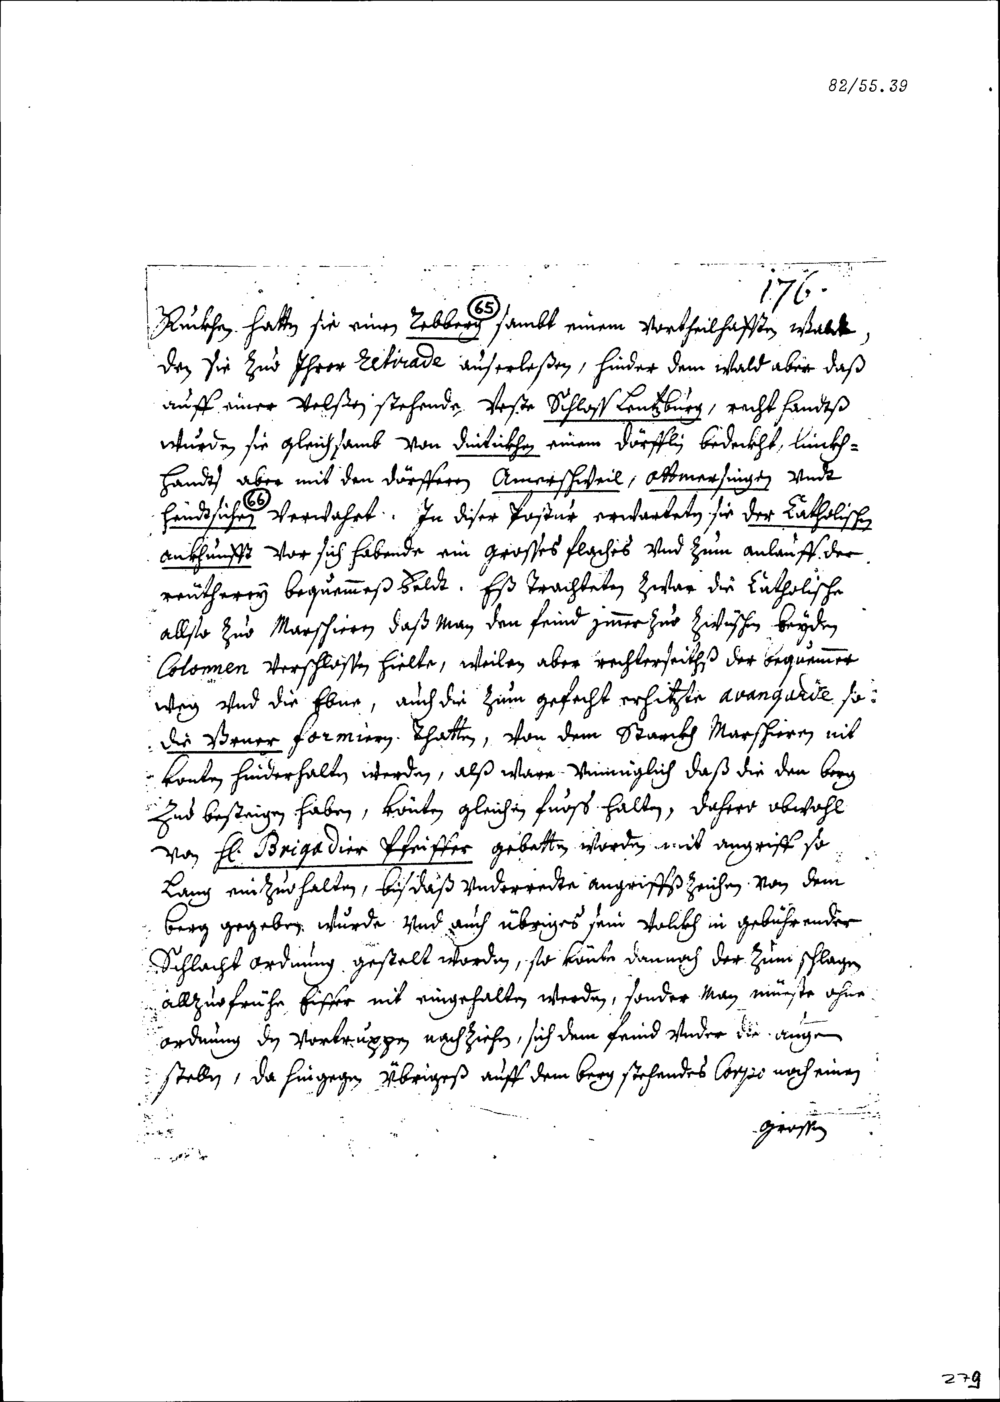 82/55.39
176.
Ruckhen hatten sie einen Rebberg (65) sambt einem Vortheilhafften Waldt,
den sie zuo Ihrer Retirade auserleßen, hinder dem wald aber daß
auff einer Velßen stehende Veste Schloss Lentzburg, recht handtß
wurden sie gleichsamb von dintickhen einem dörfflin bedeckht, linckh-
handts aber mit den dörfferen Amerschweil, ottmersingen Undt
hendtschicken (66) verwahrt. In diser Postur erwarteten sie der Catholischen
ankhunfft vor sich habende ein grosses flaches Und zum anlauff der
reütherey bequemmeß Feldt. Eß trachteten zwar die Catholische
allso zuo Marschieren daß man den feind immer zuo zwüschen beyden
Colonnen Verschlossen hielte, weilen aber rechterseithß der bequemmer
weg Und die Ebne, auch die zum gefecht erhitzte avangarde so
die Urner formieren thatten, von dem Starckh Marschieren nit
konten hinderhalten werden, alß ware Unmüglich daß die den berg
zuo besteigen haben, könten gleichen fuoss halten, dahero obwohl
von H. Brigadier Pfeiffer gebetten worden mit angriff so
Lang einzuohalten, bis daß Underredte angriffß zeichen von dem
berg gegeben wurde Und auch übriges sein Volckh in gebührender
Schlacht ordnung gestelt worden, so könte dannoch der zum schlagen
allzuofrühe Eiffer nit eingehalten werden, sonder man müeste ohne
ordnung den Vortruppen nachziehen, sich dem feind Under die augen
stellen, da hingegen Übrigeß auff dem berg stehendes Corpo noch einen
grossen
279